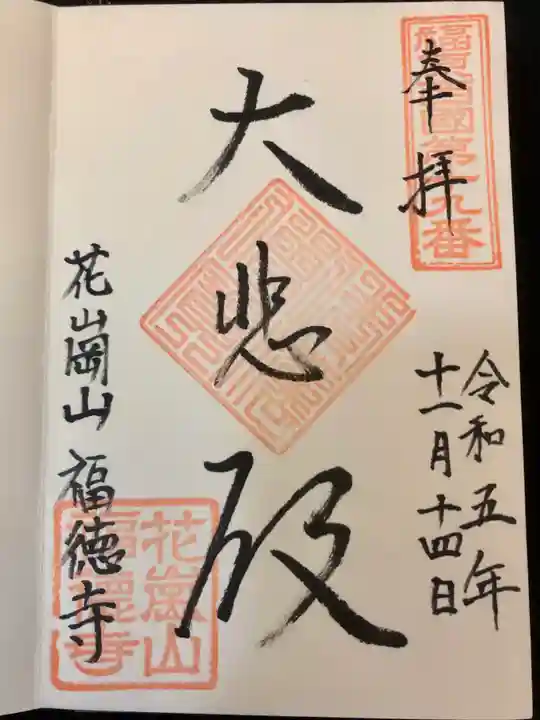 奉拝
令和五年
十一月十四日
大悲殿
花崗山 福徳寺
花嵐山
福德寺